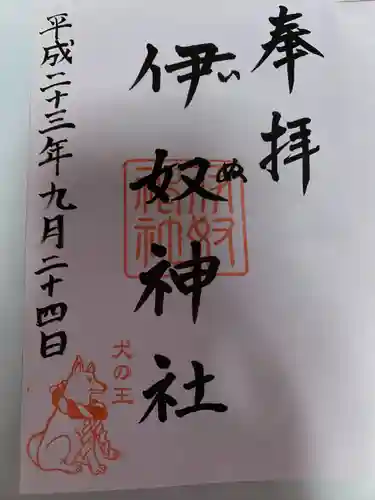 奉拝
伊奴神社
いぬ
平成二十三年九月二十四日
犬の王